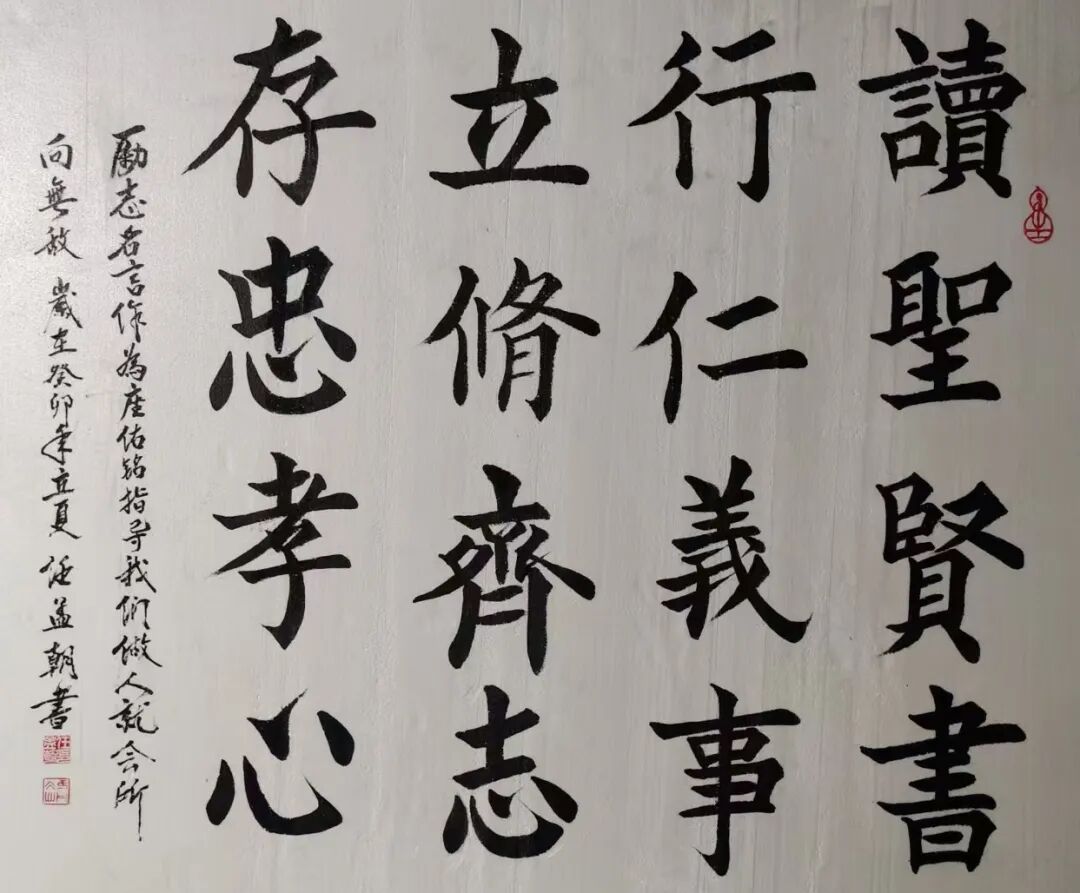 讀聖賢書
行仁義事
立脩齊志
存忠孝心
勵志名言作為座佑銘指导我们做人就会所
向無敌 歲在癸卯年立夏 任益朝書